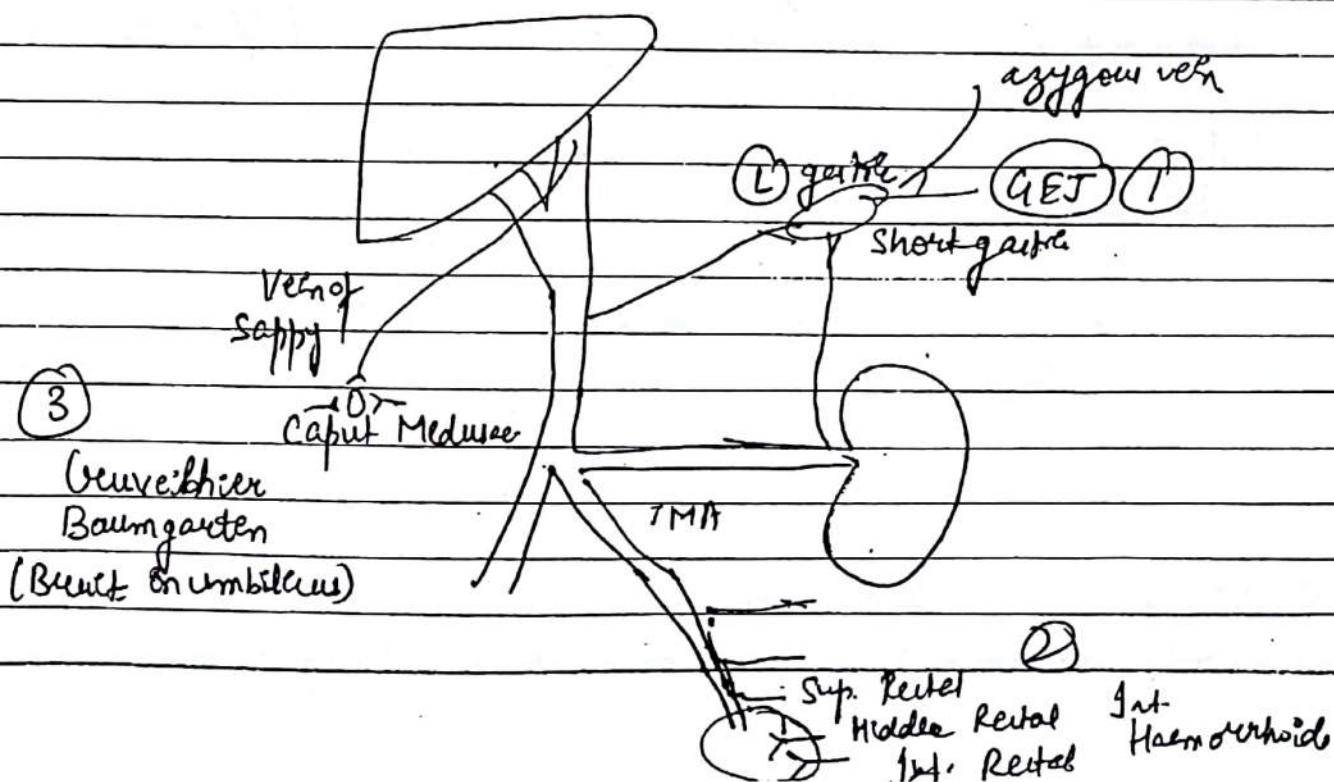 azygous vein
(L) gastric
GEJ
1
Short gastric
Vein of
Sappy
3
Caput Medusae
Cruveilhier
Baumgarten
(Bruit on umbilicus)
IMA
2
Sup. Rectal
Middle Rectal
Inf. Rectal
Int.
Haemorrhoids